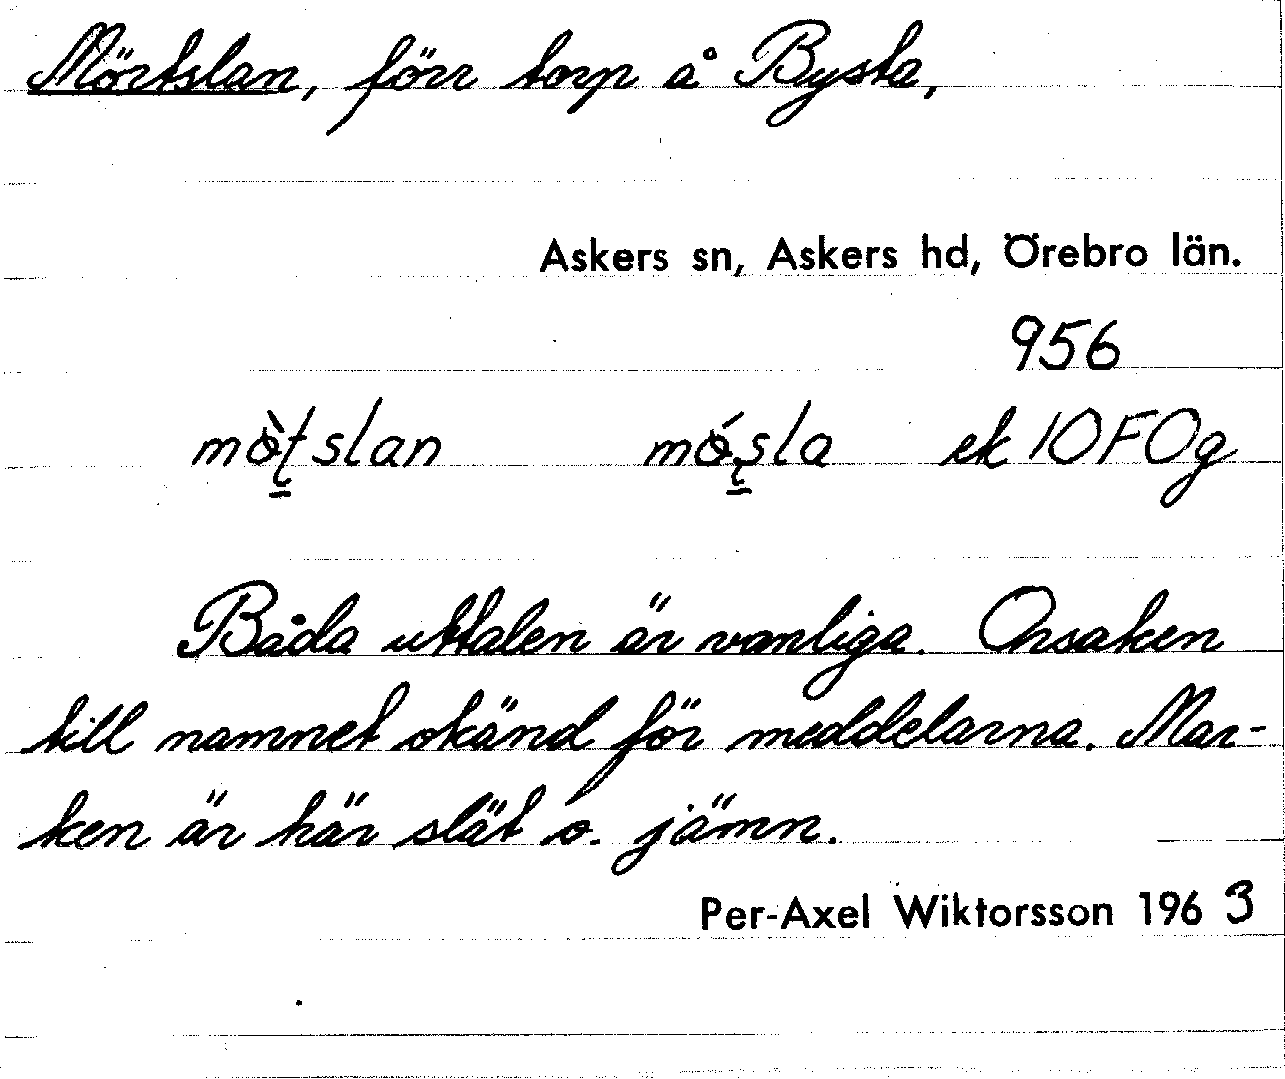 Mörtslan, förr torp å Bysta,
Askers sn, Askers hd, Örebro län.
956
mö̀tslan mǿsla ek 10 F Og
Båda uttalen är vanliga. Orsaken
till namnet okänd för meddelarna. Mar-
ken är här slät o. jämn.
Per-Axel Wiktorsson 1963